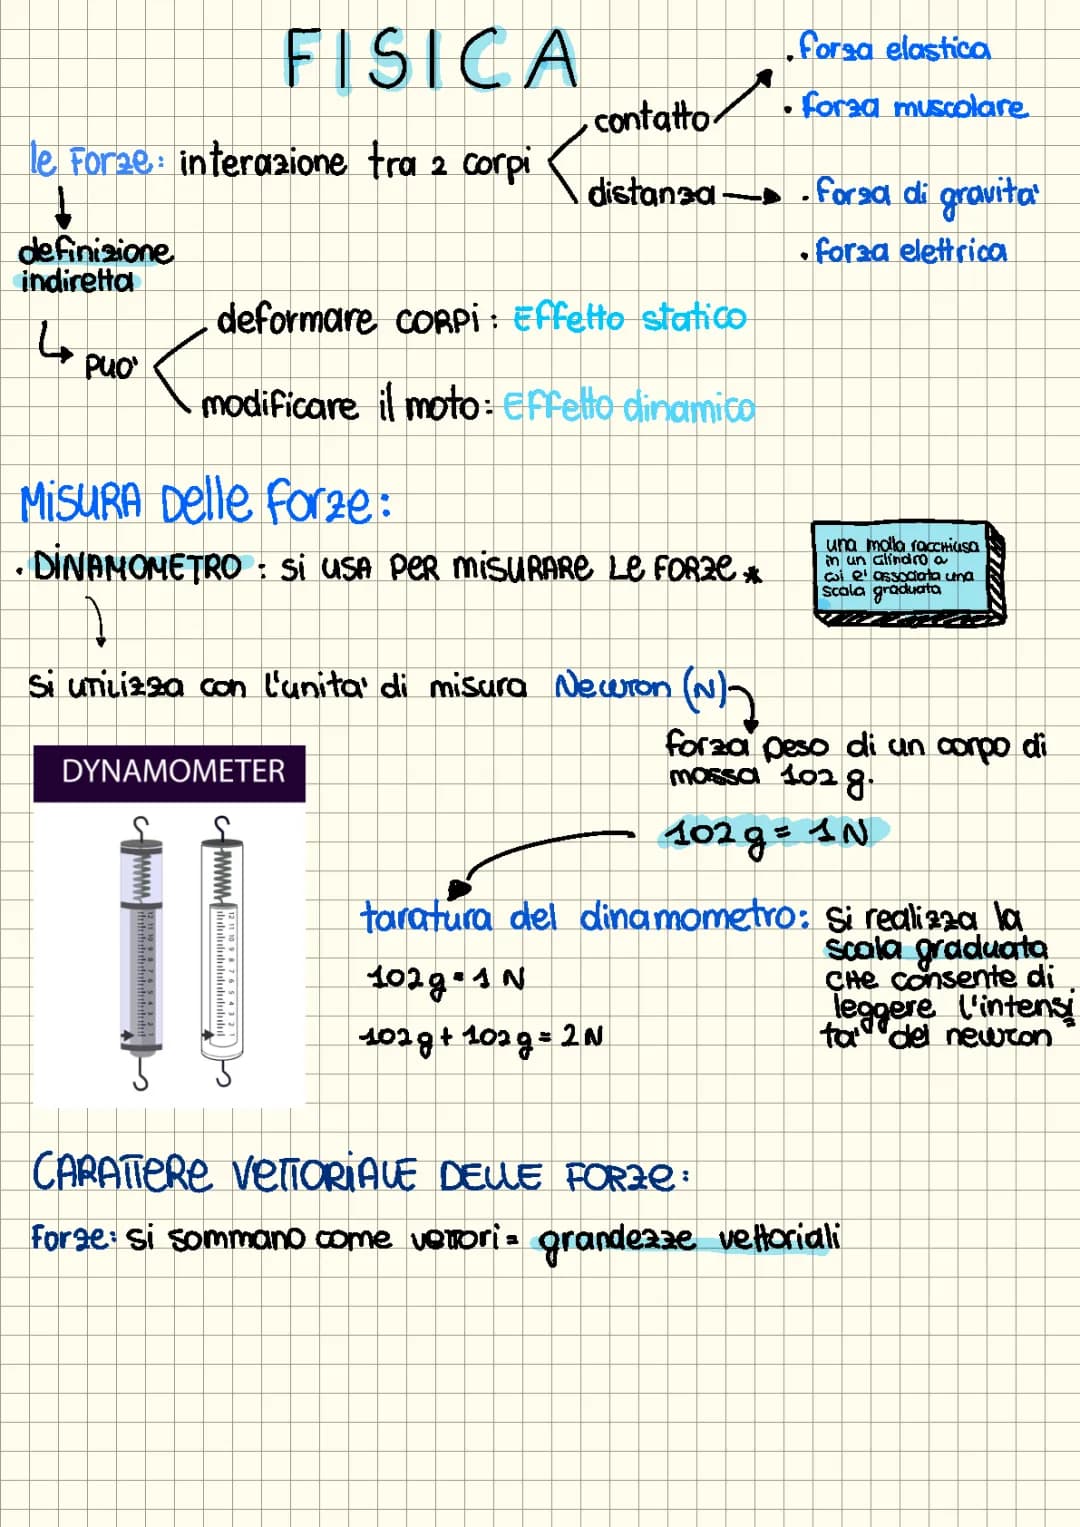 FISICA
. forza elastica
. forza muscolare
contatto
le Forze: interazione tra 2 corpi
distanza
. forza di gravita'
. forza elettrica
definizione
indiretta
può'
deformare CORPi: Effetto statico
modificare il moto: Effetto dinamico
MiSURA Delle forze:
. DINAMOMETRO: si USA PER MISURARE Le FORZe *
una molla racchiusa
in un cilindro a
cui e' associata una
scala graduata
Si utilizza con l'unita' di misura Newton (N)
forza peso di un corpo di
massa 102 g.
102 g = 1 N
DYNAMOMETER
taratura del dinamometro: si realizza la
scala graduata
che consente di
leggere l'intensi
ta' del newton
102 g = 1 N
102 g + 102 g = 2 N
CARATTERE VETTORIALE DELLE FORZE:
Forze: si sommano come vettori = grandezze vettoriali